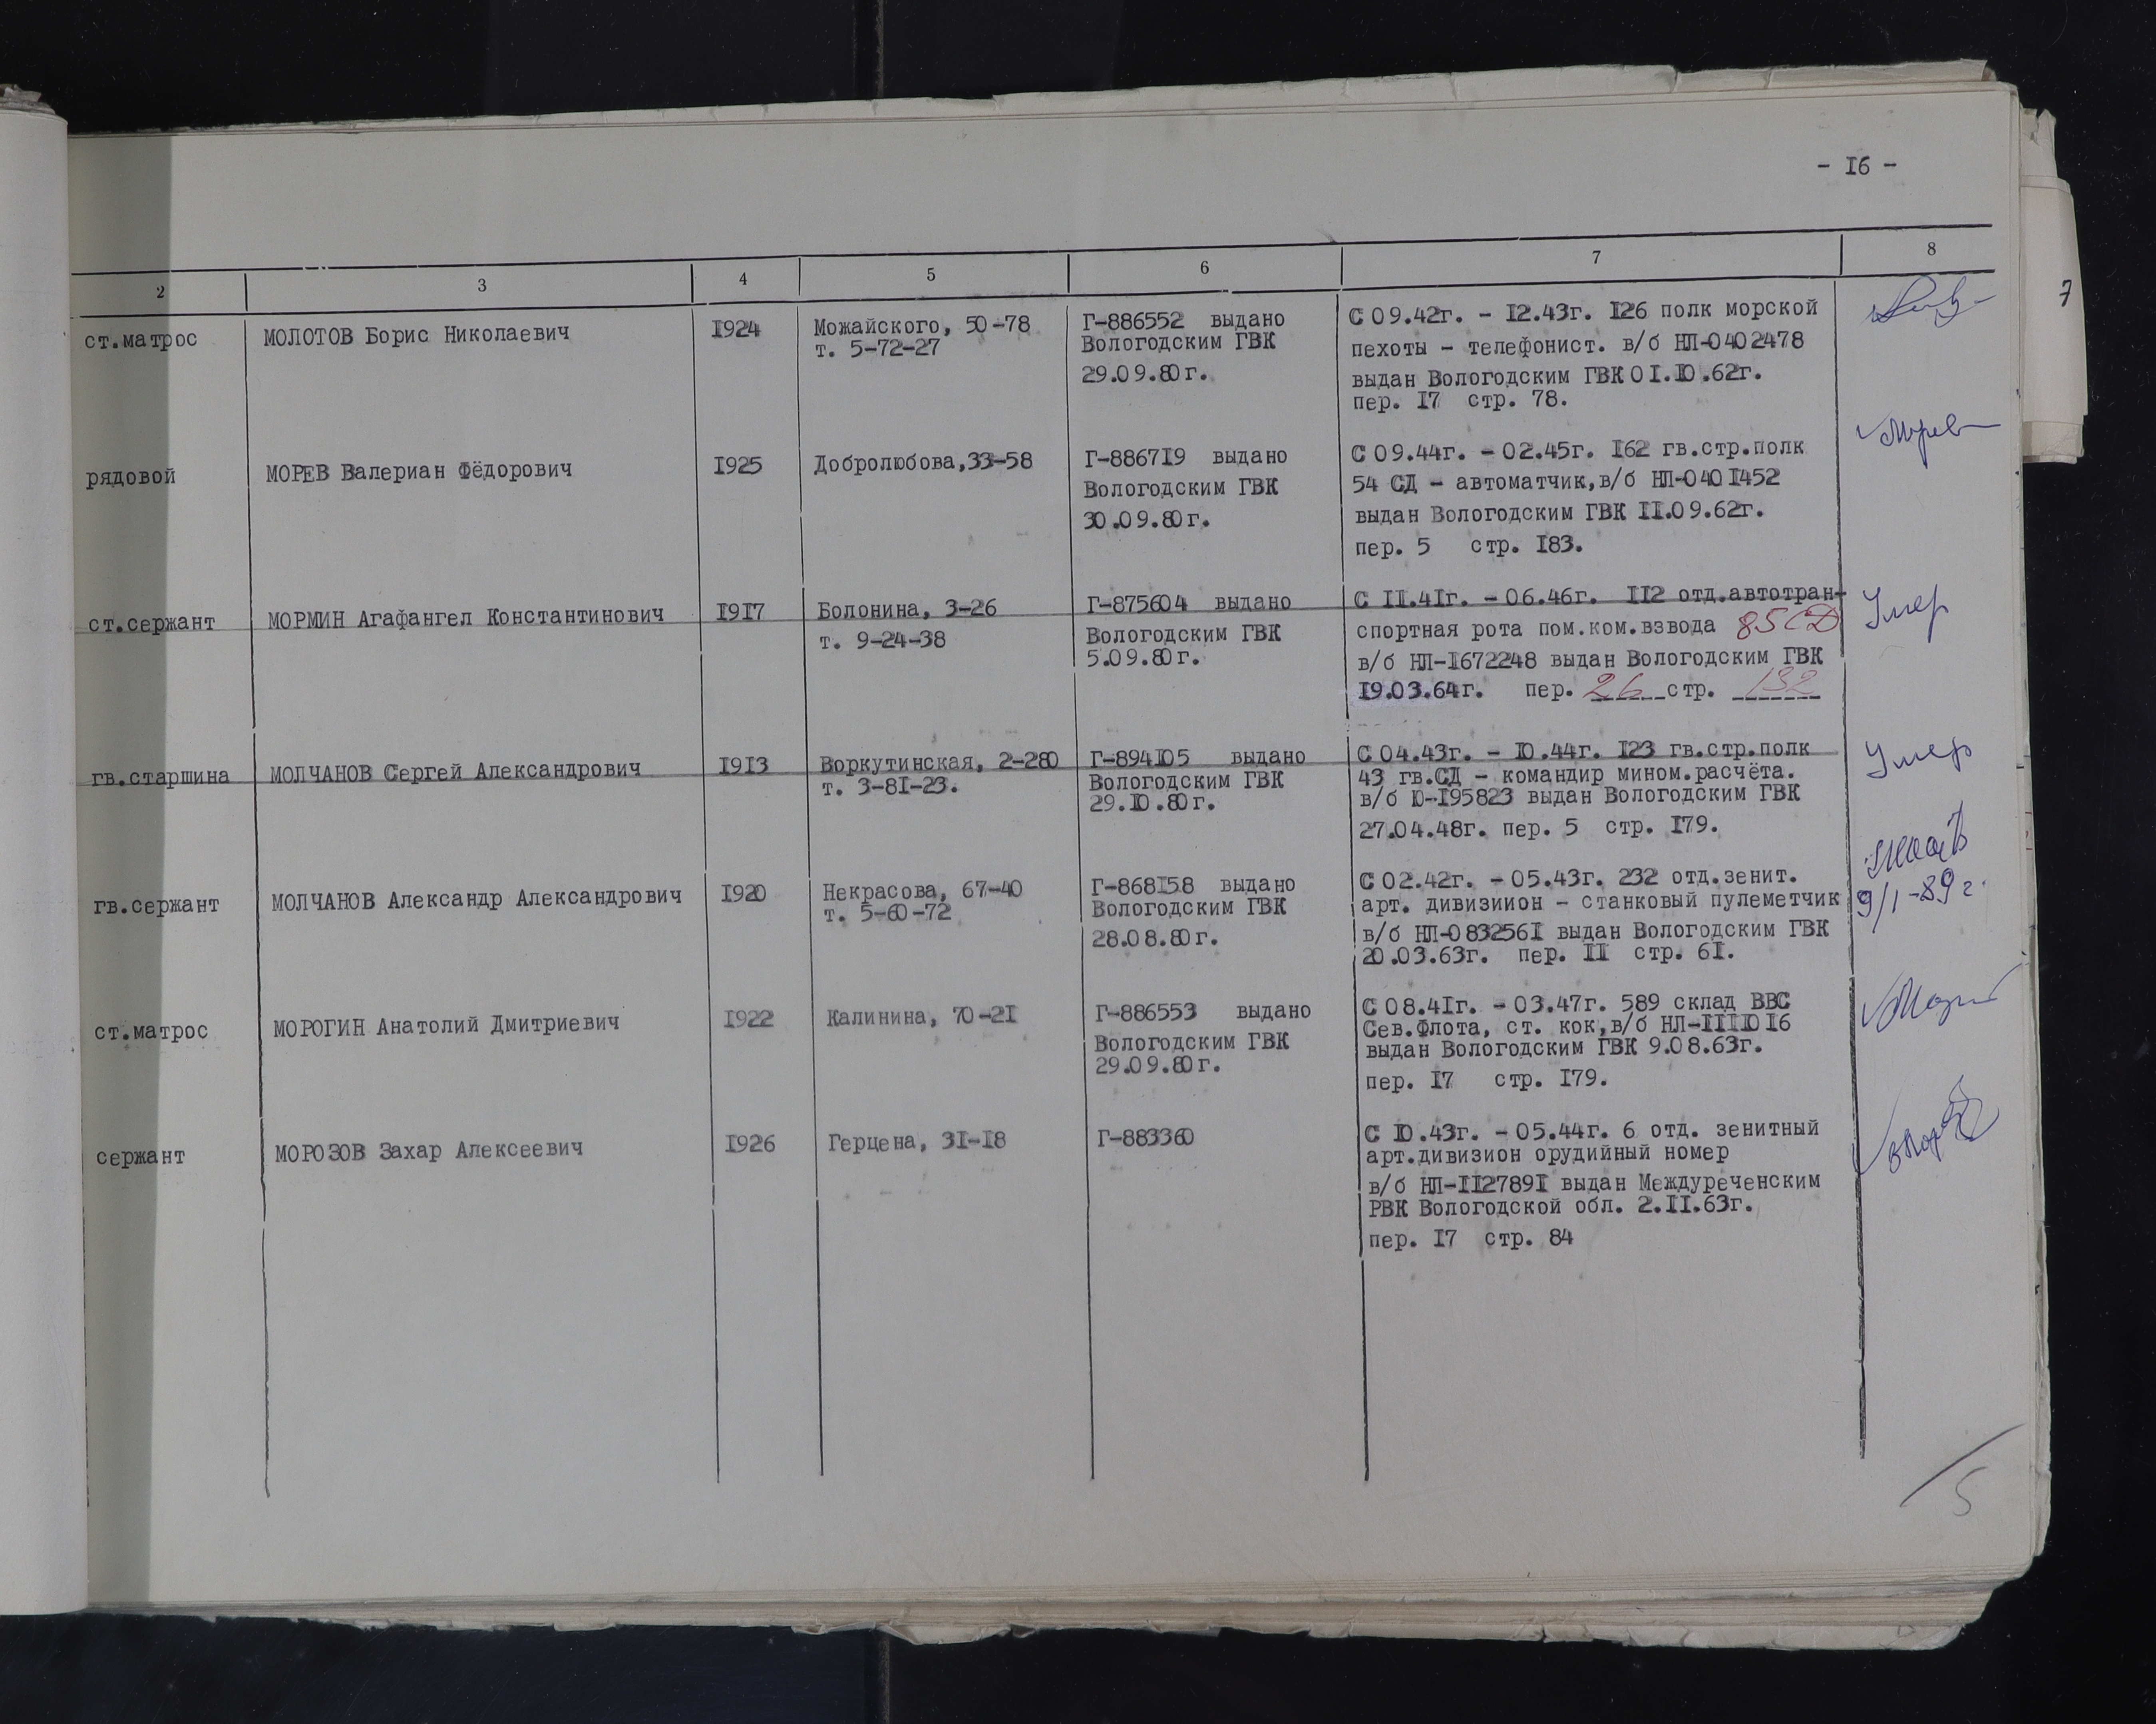 - I6 -
7
2 3 4 5 6 7 8
ст.матрос МОЛОТОВ Борис Николаевич I924 Можайского, 50-78 Г-886552 выдано С 09.42г. - I2.43г. I26 полк морской
т. 5-72-27 Вологодским ГВК пехоты - телефонист. в/б НЛ-0402478
29.09.80г. выдан Вологодским ГВК 0I.I0.62г.
пер. I7 стр. 78.
рядовой МОРЕВ Валериан Фёдорович I925 Добролюбова,33-58 Г-8867I9 выдано С 09.44г. - 02.45г. I62 гв.стр.полк
Вологодским ГВК 54 СД - автоматчик,в/б НЛ-040I452
30.09.80г. выдан Вологодским ГВК II.09.62г.
пер. 5 стр. I83.
ст.сержант МОРМИН Агафангел Константинович I9I7 Болонина, 3-26 Г-875604 выдано С II.4Iг. - 06.46г. II2 отд.автотран- Умер
т. 9-24-38 Вологодским ГВК спортная рота пом.ком.взвода 85СД
5.09.80г. в/б НЛ-I672248 выдан Вологодским ГВК
I9.03.64г. пер. 26 стр. 132
гв.старшина МОЛЧАНОВ Сергей Александрович I9I3 Воркутинская, 2-280 Г-894I05 выдано С 04.43г. - I0.44г. I23 гв.стр.полк Умер
т. 3-8I-23. Вологодским ГВК 43 гв.СД - командир мином.расчёта.
29.I0.80г. в/б Ю-I95823 выдан Вологодским ГВК
27.04.48г. пер. 5 стр. I79.
гв.сержант МОЛЧАНОВ Александр Александрович I920 Некрасова, 67-40 Г-868I58 выдано С 02.42г. - 05.43г. 232 отд.зенит. 9/1-89г.
т. 5-60-72 Вологодским ГВК арт. дивизиион - станковый пулеметчик
28.08.80г. в/б НЛ-083256I выдан Вологодским ГВК
20.03.63г. пер. II стр. 6I.
ст.матрос МОРОГИН Анатолий Дмитриевич I922 Калинина, 70-2I Г-886553 выдано С 08.4Iг. - 03.47г. 589 склад ВВС
Вологодским ГВК Сев.Флота, ст. кок,в/б НЛ-IIII0I6
29.09.80г. выдан Вологодским ГВК 9.08.63г.
пер. I7 стр. I79.
сержант МОРОЗОВ Захар Алексеевич I926 Герцена, 3I-I8 Г-883360 С I0.43г. - 05.44г. 6 отд. зенитный
арт.дивизион орудийный номер
в/б НЛ-II2789I выдан Междуреченским
РВК Вологодской обл. 2.II.63г.
пер. I7 стр. 84
5